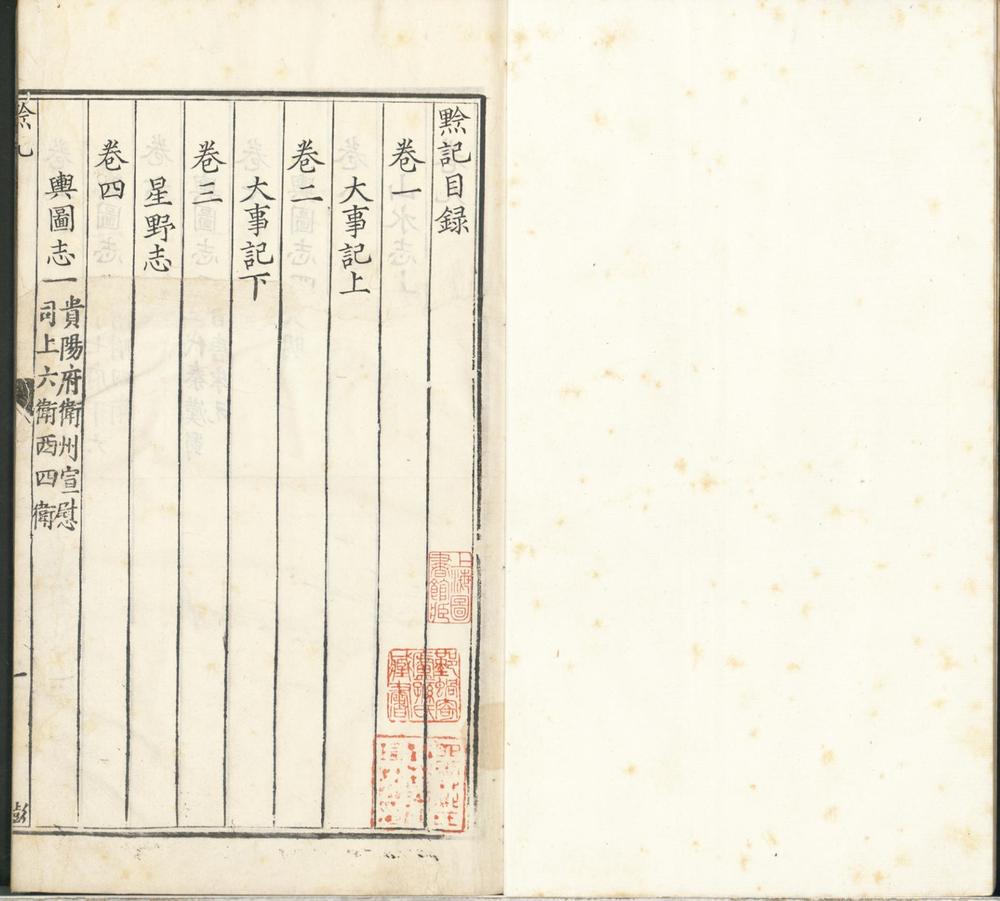 黥記目録
卷一
大事記上
卷二
大事記下
卷三
星野志
卷四
輿圖志一
貴陽府衛州宣慰
司上六衛西四衛
一
彭
上海圖
書館藏
藏書